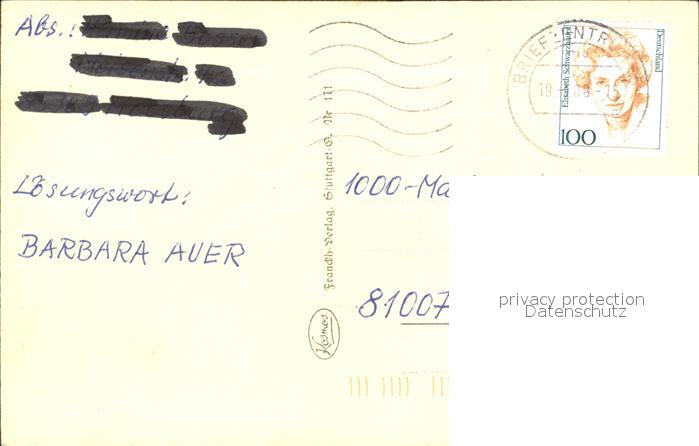 Abs.:
Lösungswort:
BARBARA AUER
Franckh-Verlag, Stuttgart-O. Nr 171
Kosmos
BRIEFZENTR
19
Elisabeth Schwarzhaupt
Deutschland
100
1000-Ma
81007
privacy protection
Datenschutz